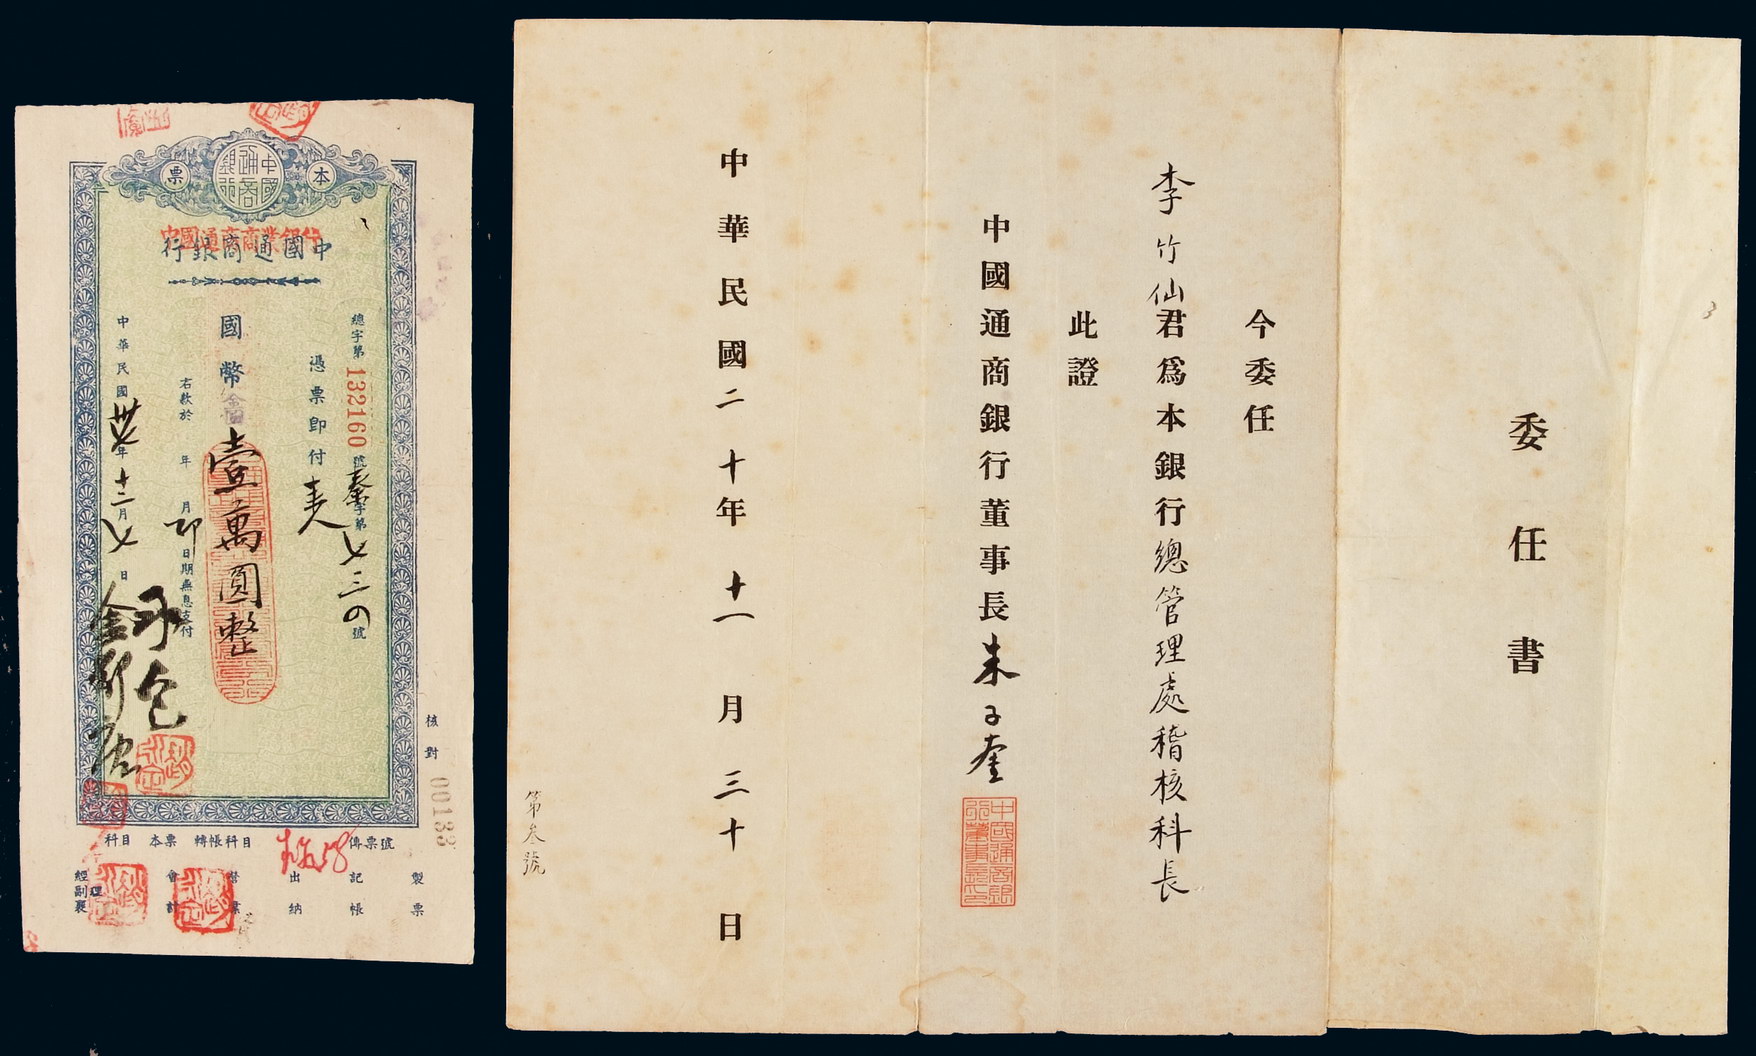 本
中國通商銀行
票
中國通商商業銀行
中國通商銀行
總字第132160號
字第七三〇號
憑票即付
來人
國幣
壹萬圓整
右款於 年 月 即日期無息支付
中華民國 年十二月七日
核對
00133
科目 本票 轉帳科目
傳票號
製票
記帳
出納
營業
會計
經副襄理
委任書
今委任
李竹仙君為本銀行總管理處稽核科長
此證
中國通商銀行董事長朱子奎
中國通商銀行董事長印
中華民國二十年十一月三十日
第叁號